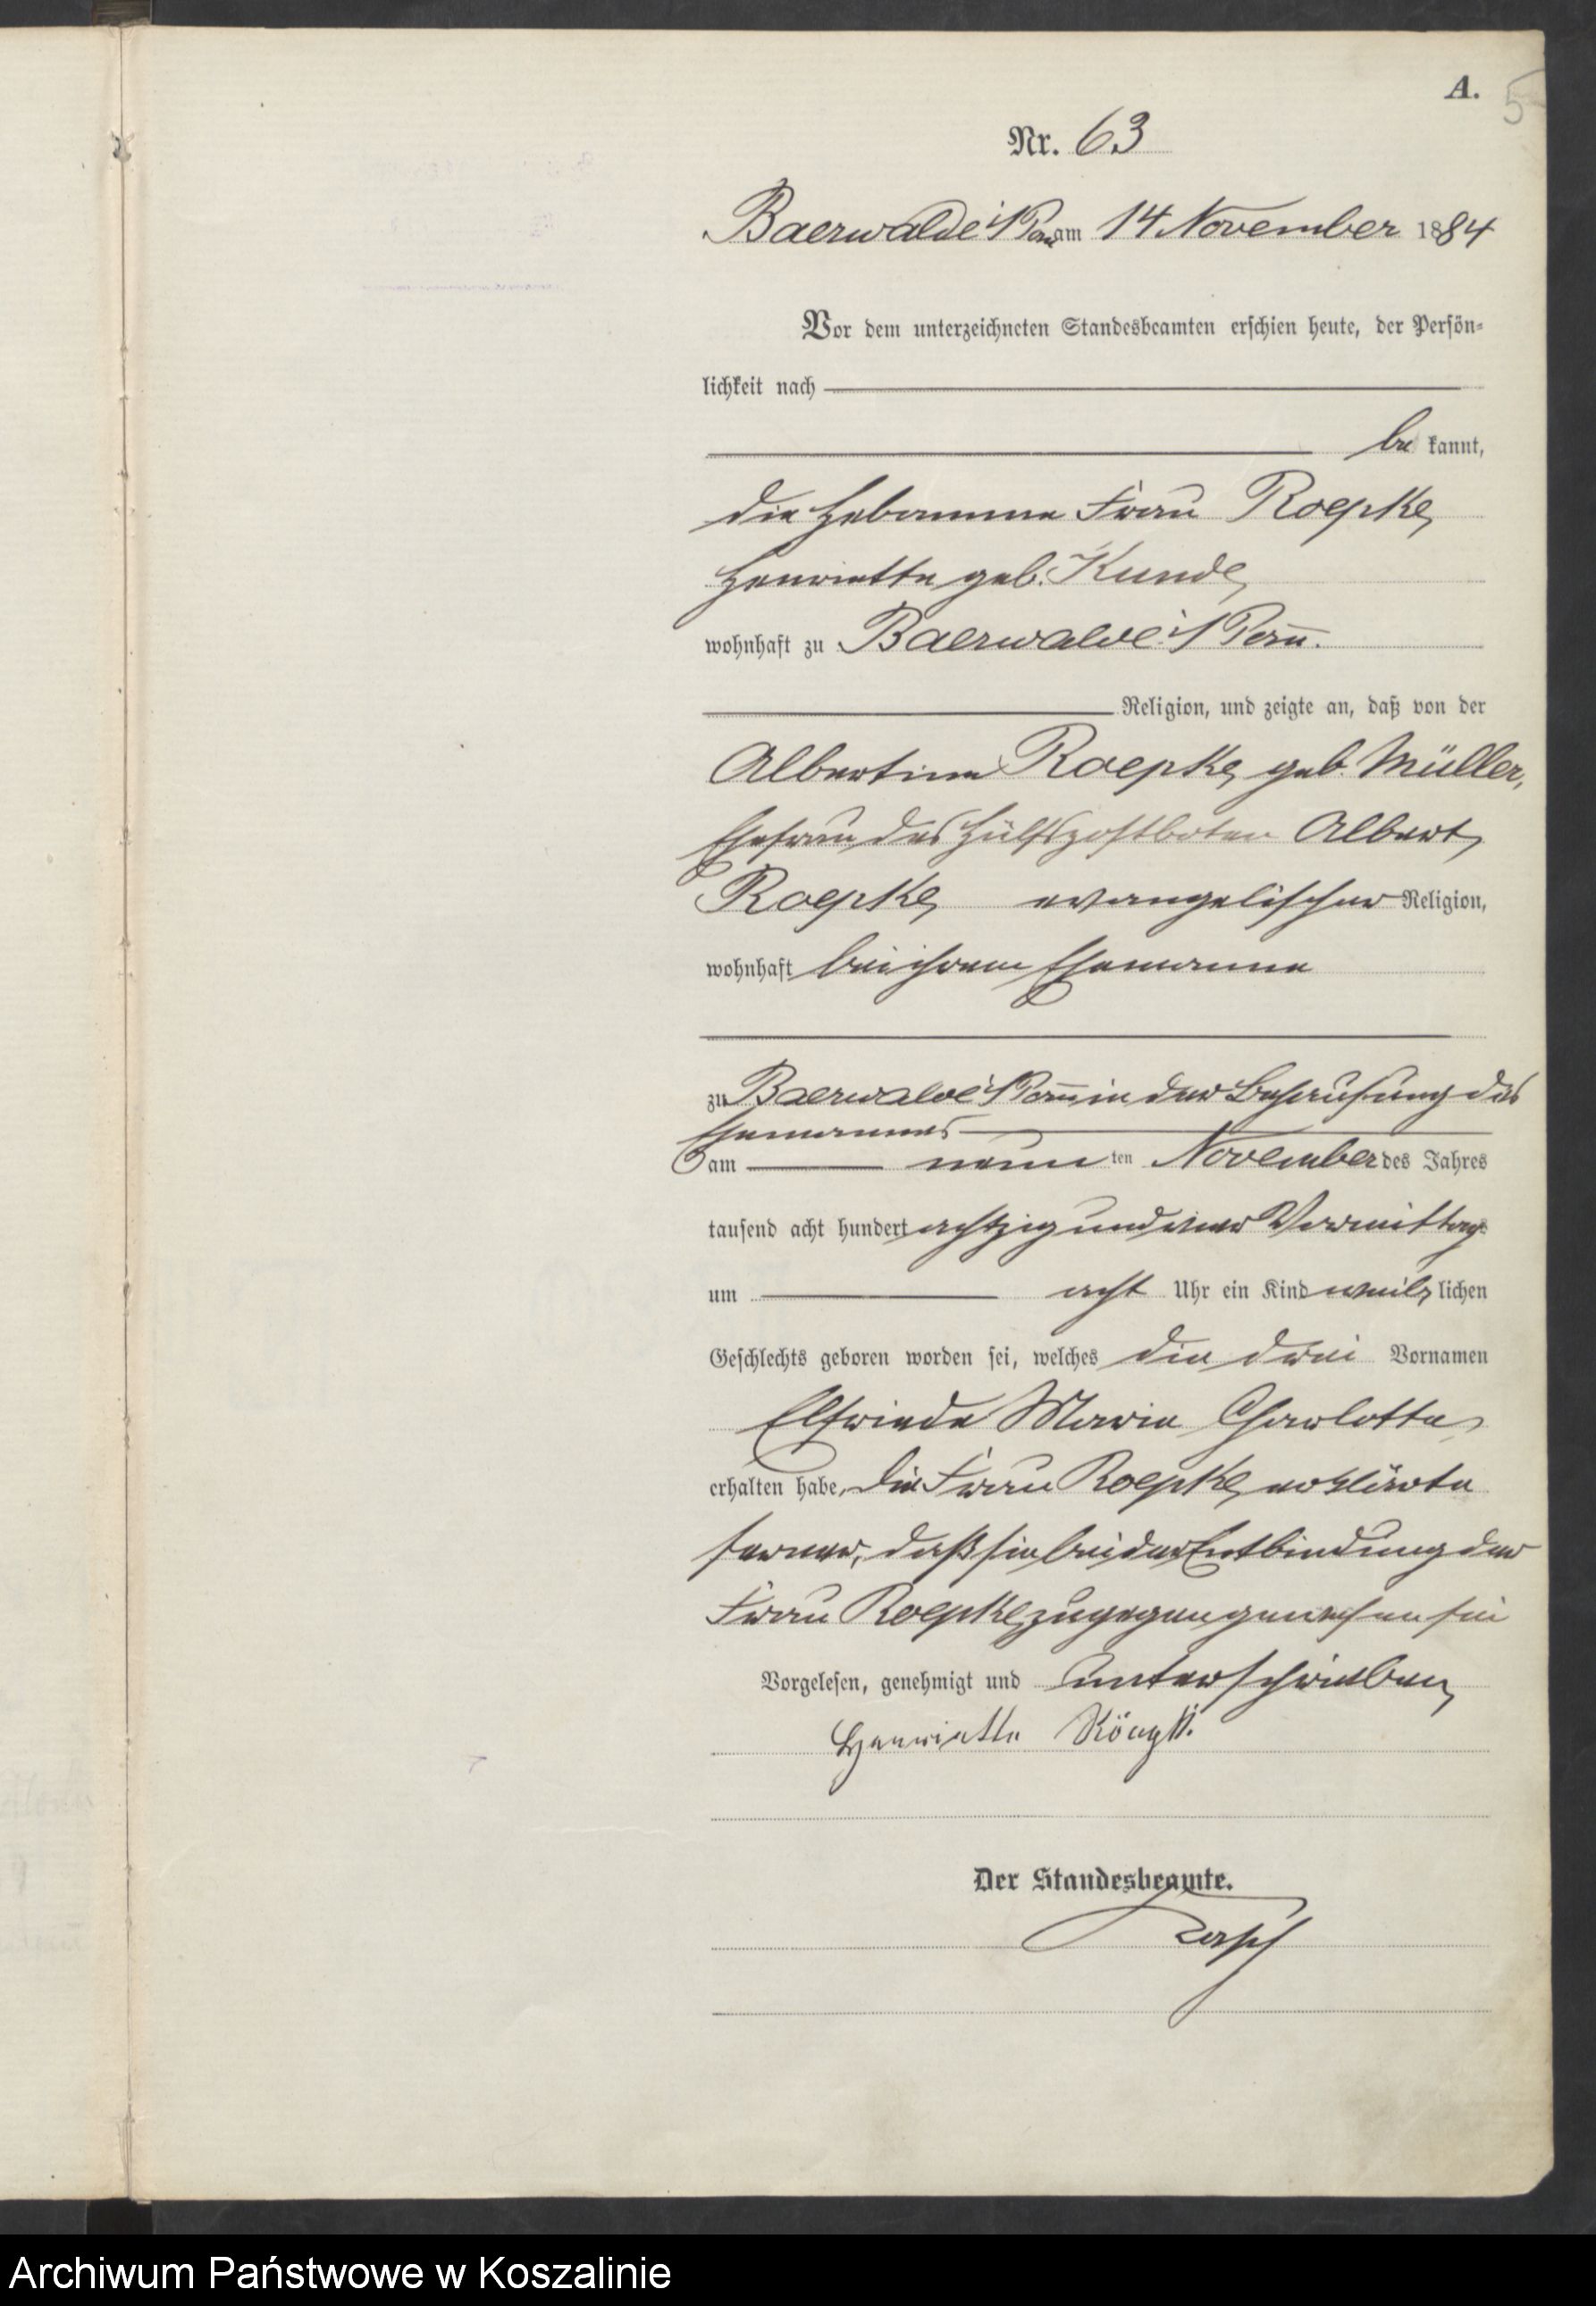 A.
5
Nr. 63
Baerwalde i/Pom am 14 November 1884
Vor dem unterzeichneten Standesbeamten erschien heute, der Persön-
lichkeit nach
be kannt,
die Hebamme Frau Roepke,
Henriette geb. Kunde,
wohnhaft zu Baerwalde i/Pom.
Religion, und zeigte an, daß von der
Albertine Roepke, geb. Müller,
Ehefrau des Hülfspostboten Albert
Roepke, evangelischer Religion,
wohnhaft bei ihrem Ehemanne
zu Baerwalde i/Pom in der Behausung des
Ehemannes
am neun ten November des Jahres
tausend acht hundert achtzig und vier Vormittags
um acht Uhr ein Kind weib lichen
Geschlechts geboren worden sei, welches die drei Vornamen
Elfriede Marie Charlotte
erhalten habe, die Frau Roepke, erklärte
ferner, daß sie bei der Entbindung der
Frau Roepke, zugegen gewesen sei
Vorgelesen, genehmigt und unterschrieben,
Henriette
Der Standesbeamte.
Archiwum Państwowe w Koszalinie